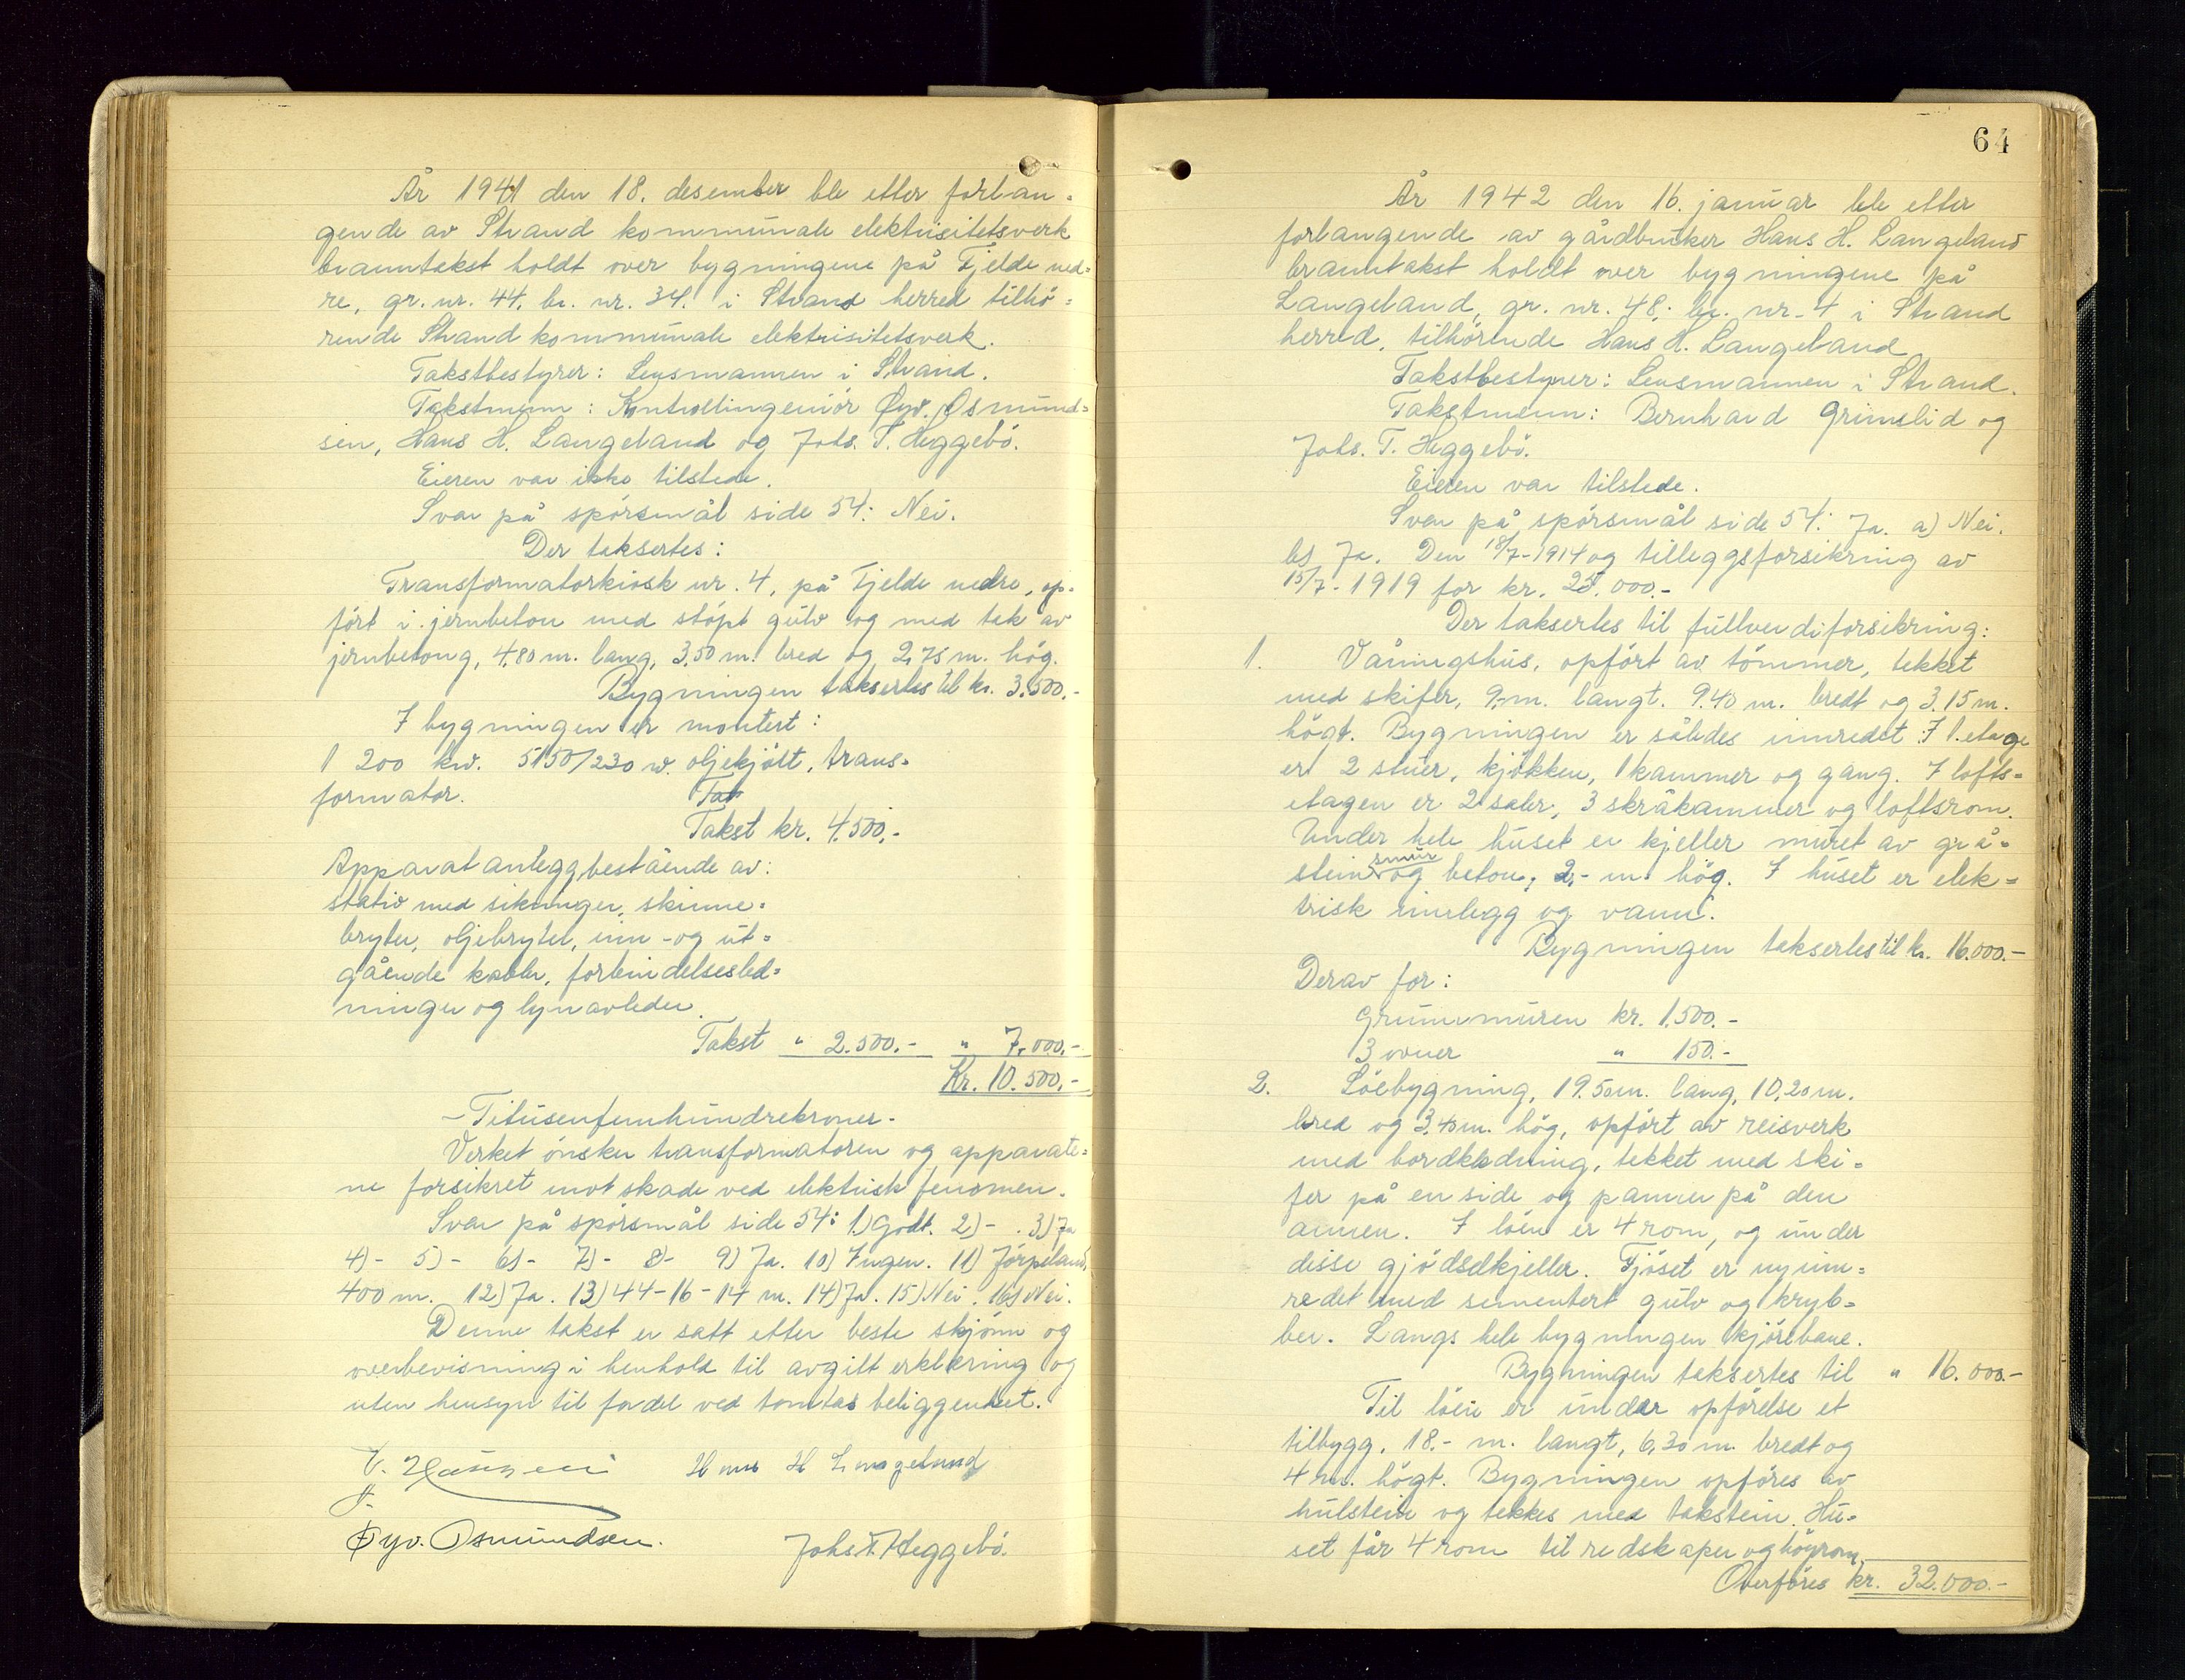 År 1941 den 18. desember ble etter forlan-
gende av Strand kommunale elektrisitetsverk
branntakst holdt over bygningene på Fjelde ned-
re, gr. nr. 44, br. nr. 34. i Strand herred tilhö-
rende Strand kommunale elektrisitetsverk.
Takstbestyrer: Lensmannen i Strand.
Takstmenn: Kontrollingeniör Öyv. Osmund-
sen, Hans H. Langeland og Johs. T. Heggebö.
Eieren var ikke tilstede.
Svar på spörsmål side 54: Nei.
Der taksertes:
Transformatorkiosk nr. 4, på Fjelde nedre, op-
fört i jernbeton med stöpt gulv og med tak av
jernbetong, 4,80 m. lang, 3,50 m. bred og 2,75 m. hög.
Bygningen taksertes til kr. 3.500.-
I bygningen er montert:
1 200 kw. 5150/230 w. oljekjölt, trans-
formator. Tak
Takst kr. 4.500.-
Apparatanlegg bestående av:
stativ med sikringer, skinne-
bryter, oljebryter, inn- og ut-
gående kabler, forbindelsesled-
ninger og lynavleder.
Takst " 2.500.- " 7.000.-
Kr. 10.500.-
-Titusenfemhundrekroner-
Verket önsker transformatoren og apparate-
ne forsikret mot skade ved elektrisk fenomen.
Svar på spörsmål side 54: 1) Godt. 2) - . 3) Ja
4) - 5) - 6) - 7) - 8) - 9) Ja. 10) Ingen. 11) Jörpeland,
400 m. 12) Ja. 13) 44-16-14 m. 14) Ja. 15) Nei. 16) Nei.
Denne takst er satt etter beste skjönn og
overbevisning i henhold til avgitt erklæring og
uten hensyn til fordel ved tomtas beliggenhet.
Hans H Langeland
Öyv. Osmundsen. Johs T. Heggebö.
64
År 1942 den 16. januar ble etter
forlangende av gårdbruker Hans H. Langeland
branntakst holdt over bygningene på
Langeland, gr. nr. 48, br. nr. 4 i Strand
herred, tilhörende Hans H. Langeland
Takstbestyrer: Lensmannen i Strand.
Takstmenn: Bernhard Grimslid og
Johs. T. Heggebö.
Eieren var tilstede.
Svar på spörsmål side 54: Ja. a) Nei.
b) Ja. Den 18/7-1914 og tilleggsforsikring av
15/7-1919 for kr. 25.000.-
Der taksertes til fullverdiforsikring:
1. Våningshus, opfört av tömmer, tekket
med skifer, 9,- m. langt. 9.40 m. bredt og 3.15 m.
högt. Bygningen er således innredet: I 1. etage
er 2 stuer, kjökken, 1 kammer og gang. I lofts-
etagen er 2 saler, 3 skråkammer og loftsrom.
Under hele huset er kjeller muret av grå-
stein smur og beton, 2,- m. hög. I huset er elek-
trisk innlegg og vann.
Bygningen taksertes til kr. 16.000.-
Derav for:
Grunnmuren kr. 1.500.-
3 ovner " 150.-
2. Löebygning, 19.50 m. lang, 10,20 m.
bred og 3,40 m. hög, opfört av reisverk
med bordkledning, tekket med ski-
fer på en side og panner på den
annen. I löen er 4 rom, og under
disse gjödselkjeller. Fjöset er nyinn-
redet med sementert gulv og kryb-
ber. Langs hele bygningen kjörebane.
Bygningen taksertes til " 16.000.-
Til löen er under opförelse et
tilbygg, 18.- m. langt, 6,30 m. bredt og
4 m. högt. Bygningen opföres av
hulstein og tekkes med takstein. Hu-
set får 4 rom til redskaper og höyrom.
Overföres kr. 32.000.-